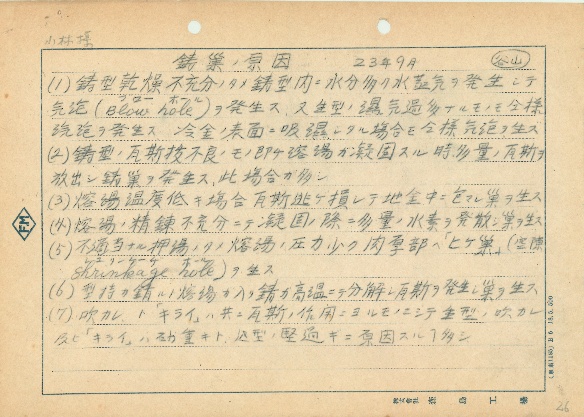 小林様
鋳巣ノ原因 2349A 谷山
(1) 鋳型乾燥不充分ノタメ鋳型内ニ水分多ク水蒸気ヲ発生シテ
気泡(Blow hole)ヲ発生ス 又生型ノ湿気過多ナルモノモ仝様
ブローホール
気泡ヲ発生ス 冷金ノ表面ニ吸湿シタル場合モ仝様気泡ヲ生ス
(2) 鋳型ノ瓦斯抜不良ノモノ即ケ熔湯ガ凝固スル時、多量ノ瓦斯ヲ
放出シ鋳巣ヲ発生ス、此場合ガ多シ
(3) 熔湯温度低キ場合瓦斯逃ゲ損シテ地金中ニ包マレ巣ヲ生ス
(4) 熔湯ノ精錬不充分ニテ凝固ノ際ニ多量ノ水素ヲ発散シ巣ヲ生ス
(5) 不適当ナル押湯ノタメ熔湯ノ圧力少ク肉厚部ヘ「ヒケ巣」(空隙
シュリンケーヂ ホール
shrinkage hole)ヲ生ス
(6) 型持ガ錆ルト熔湯ガ入リ錆ガ高温ニテ分解シ瓦斯ヲ発生シ巣ヲ生ス
(7) 吹カレ ト キライ ハ共ニ瓦斯ノ作用ニヨルモノニシテ生型ノ吹カレ
及ビ「キライ」ハ
原因スルヿ多シ
FM
株式会社 工場
26